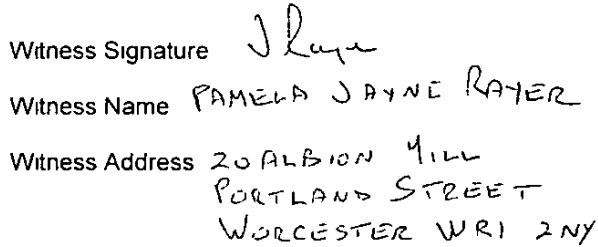 Witness Signature J Rayer
Witness Name PAMELA JAYNE RAYER
Witness Address 20 ALBION MILL
PORTLAND STREET
WORCESTER WR1 2NY